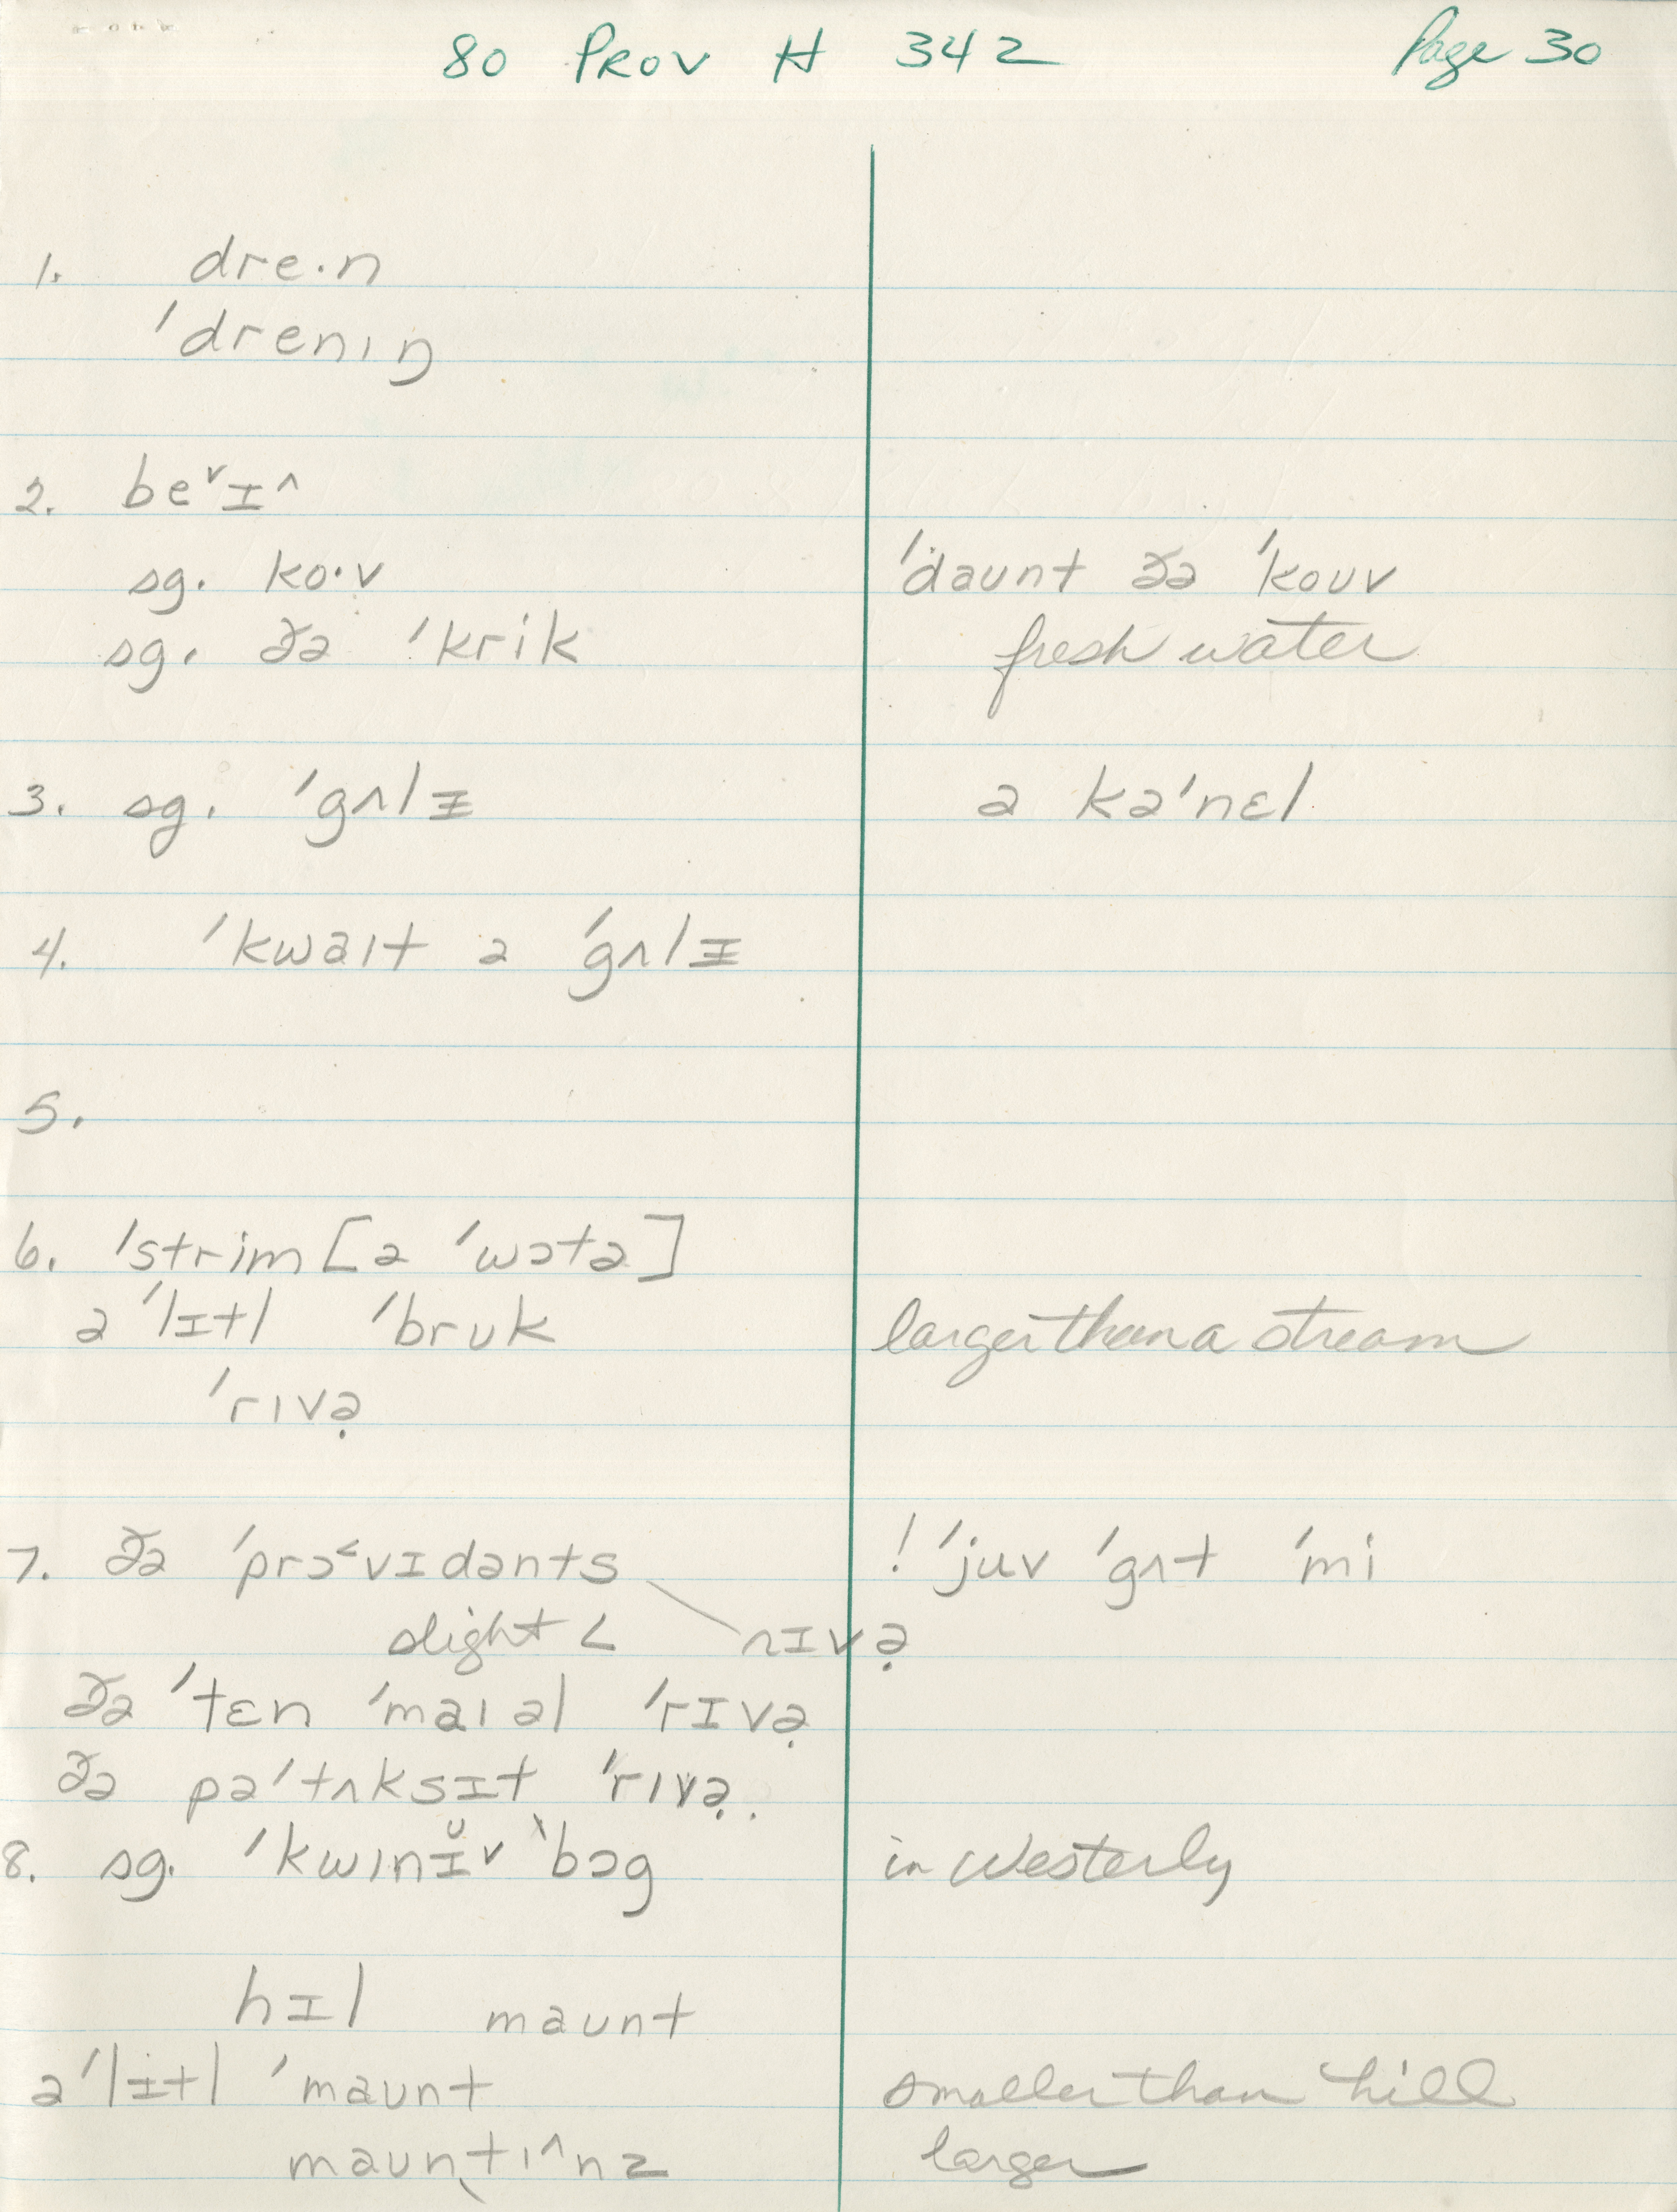 80 PROV H 342 Page 30
1. dre·n
ˈdrenıŋ
2. be˅ɪ˄
sg. ko·v
ˈdaunt ðə ˈkouv
sg. ðə ˈkrik
fresh water
3. sg. ˈgʌlɪ
a kəˈnɛl
4. ˈkwaıt ə ˈgʌlɪ
5.
6. ˈstrim [ə ˈwɔtə]
ə ˈlɪtl ˈbruk
larger than a stream
ˈrıvə̣
7. ðə ˈprɔ˂vɪdənts rɪvə̣
! ˈjuv ˈgʌt ˈmi
slight <
ðə ˈtɛn ˈmaıəl ˈrɪvə̣
ðə pəˈtʌksɪt ˈrıvə̣.
8. sg. ˈkwınɪ̆˅ ˋbɔg
in Westerly
hɪl maunt
ə ˈlɪtl ˈmaunt
smaller than hill
mauntı˄nz
larger